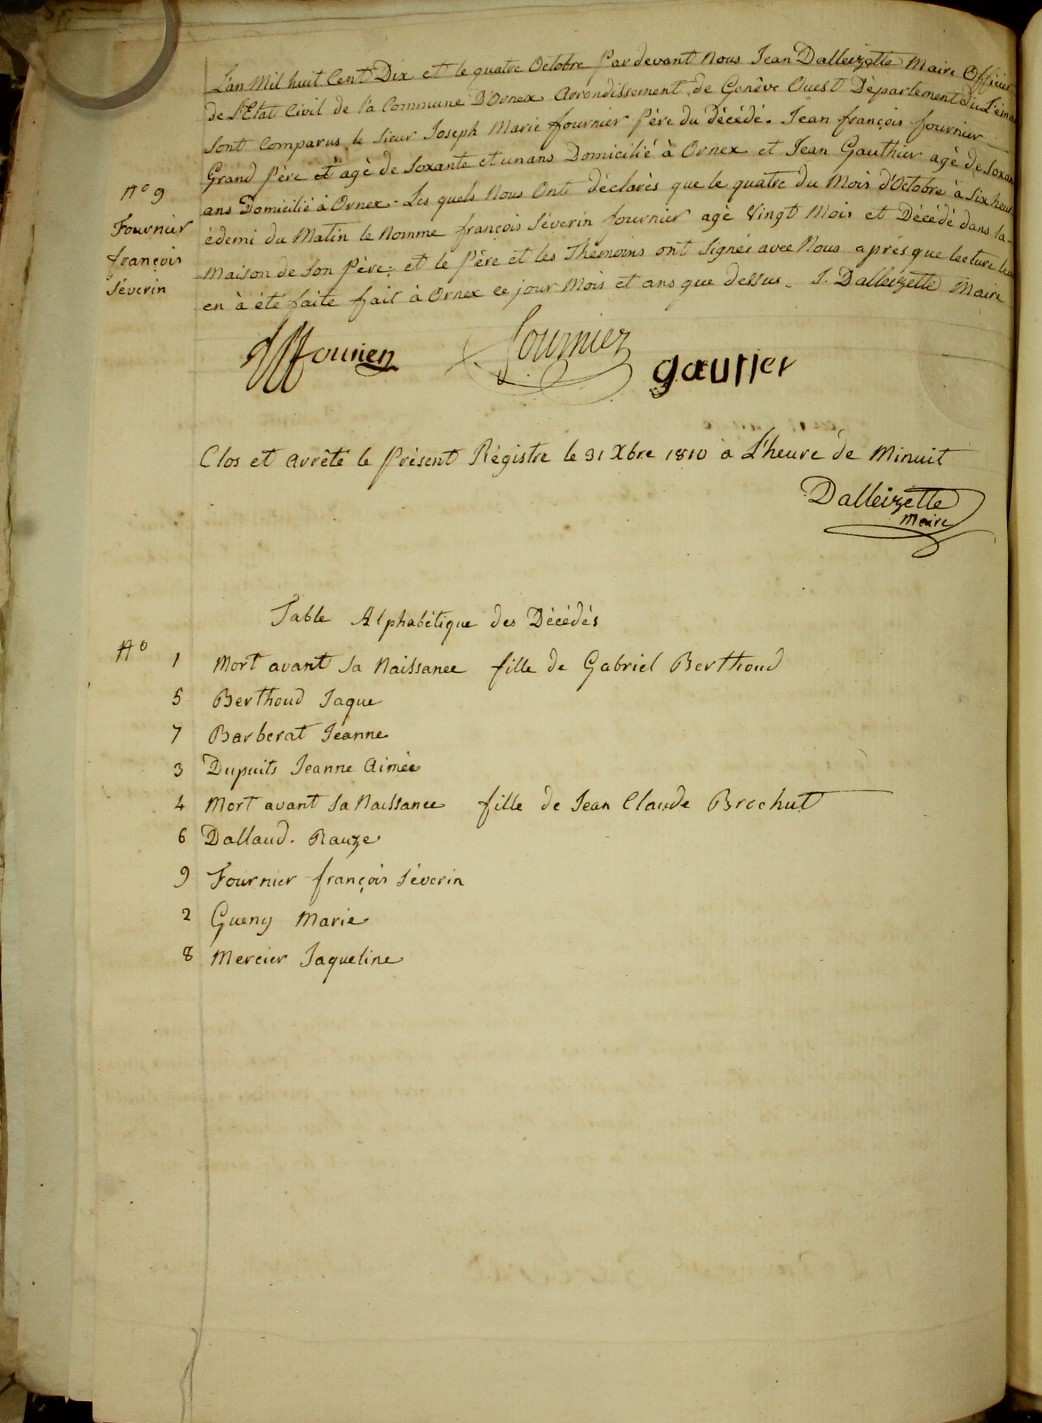 L'an Mil huit Cent Dix et le quatre Octobre Pardevant Nous Jean Dalleizette Maire Officier
de l'Etat Civil de la Commune D'Ornex Arrondissement de Genêve Ouest Département du Léman
Sont Comparus le Sieur Joseph Marie fournier Père du Décédé. Jean françois fournier
Grand Père et agè de Soxante et un ans Domicilié à Ornex et Jean Gauthier agè de Soxan
ans Domicilié à Ornex. Les quels Nous Onts déclarès que le quatre du Mois d'Octobre à Six heur
édemi du Matin le Nomme françois Séverin fournier agè Vingt Mois et Décédé dans la
Maison de Son Père. et le Père et les Thémoins ont Signés avec Nous après que lecture leu
en à été faite fait à Ornex ce jour Mois et ans que dessus. J. Dalleizette Maire
N° 9
Fournier
françois
Séverin
fournier
fournier
gautier
Clos et arrêté le Présent Régistre le 31 Xbre 1810 à L'heure de Minuit
Dalleizette
Maire
Table Alphabétique des Décédés
N° 1 Mort avant Sa Naissance fille de Gabriel Berthoud
5 Berthoud Jaque
7 Barberat Jeanne
3 Dupuits Jeanne Aimée
4 Mort avant Sa Naissance fille de Jean Claude Brochut
6 Dallaud. Rauze
9 Fournier françois Séverin
2 Gueny Marie
8 Mercier Jaqueline